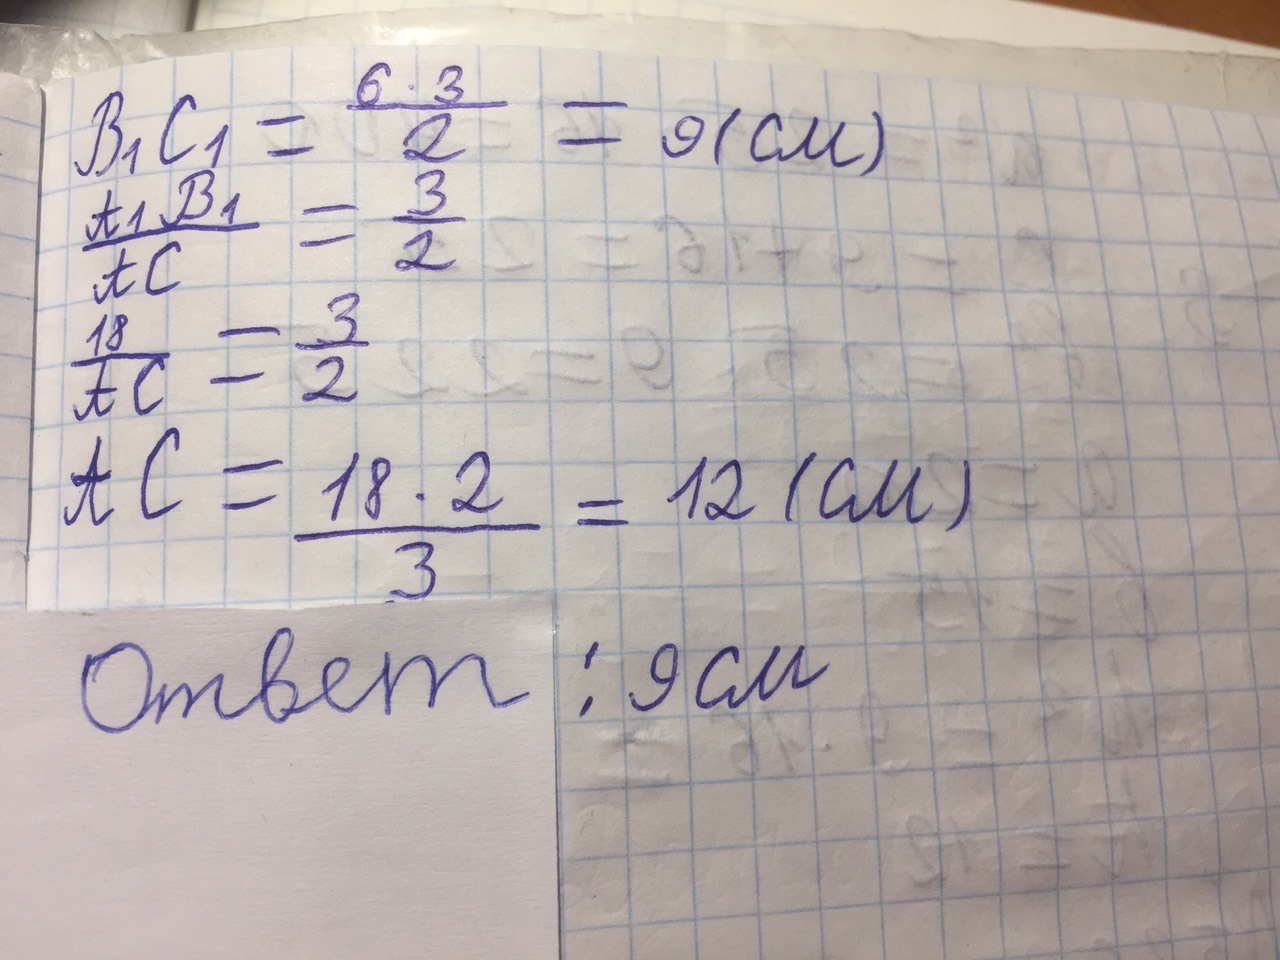 B₁C₁ = 6·3/2 = 9(см)
A₁B₁/AC = 3/2
18/AC = 3/2
AC = 18·2/3 = 12(см)
Ответ: 9см